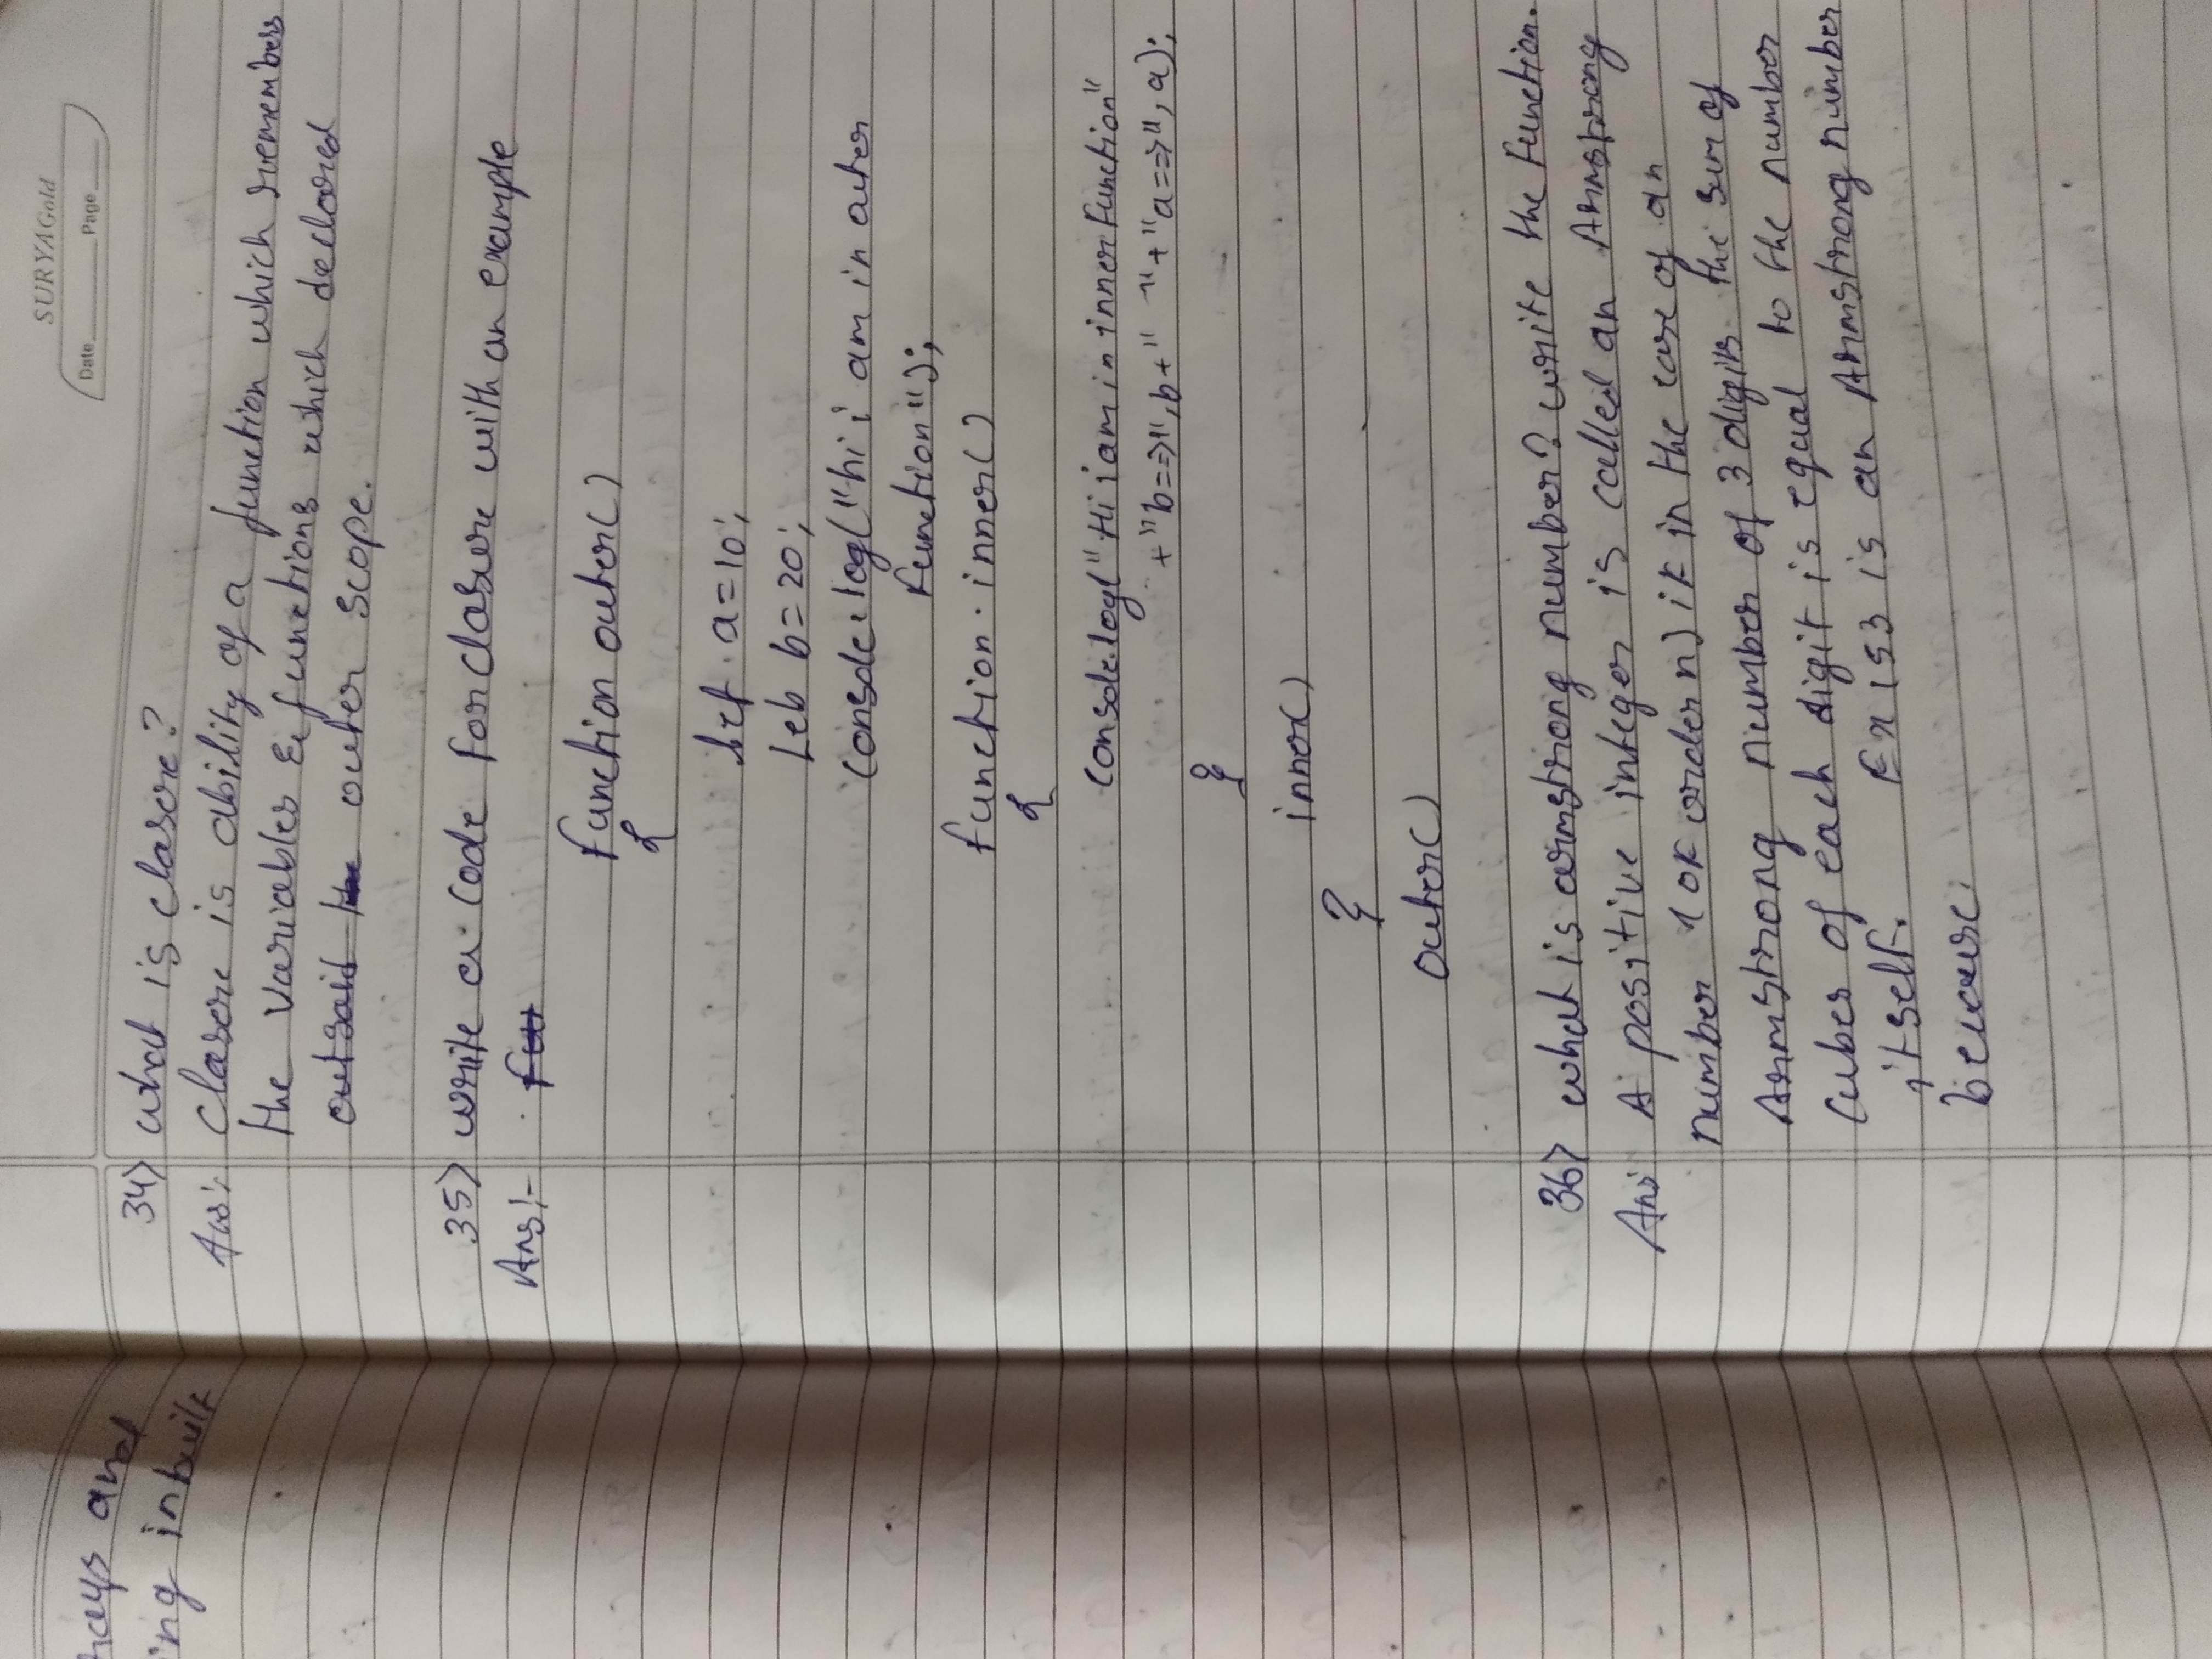 SURYAGold
Date Page
34) what is closure?
Ans: closere is ability of a function which remembers
the variables & functions which declared
outsaid outer scope.
35) write a code for closure with an example
Ans:-
function outer()
{
let a=10;
let b=20;
console.log("hi i am in outer
function");
function inner()
{
console.log("Hi i am in inner function"
+"b=>",b+" "+"a=>",a);
}
inner()
}
outer()
36) what is armstrong number? write the function.
Ans: A positive integer is called an Armstrong
number (of order n) if in the case of an
Armstrong number of 3 digits the sum of
cubes of each digit is equal to the number
itself. Ex 153 is an Armstrong number
because
and
ing inbuilt